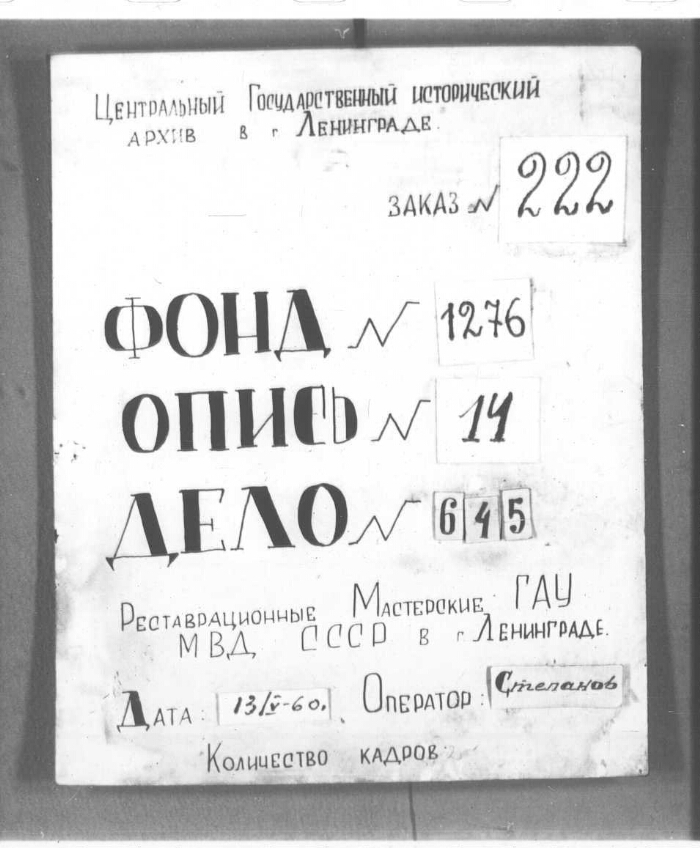 Центральный Государственный исторический
архив в г Ленинграде.
заказ № 222
ФОНД № 1276
ОПИСЬ № 14
ДЕЛО № 645
Реставрационные Мастерские ГАУ
МВД СССР в г Ленинграде.
Дата: 13/V-60. Оператор: Степанов
Количество кадров